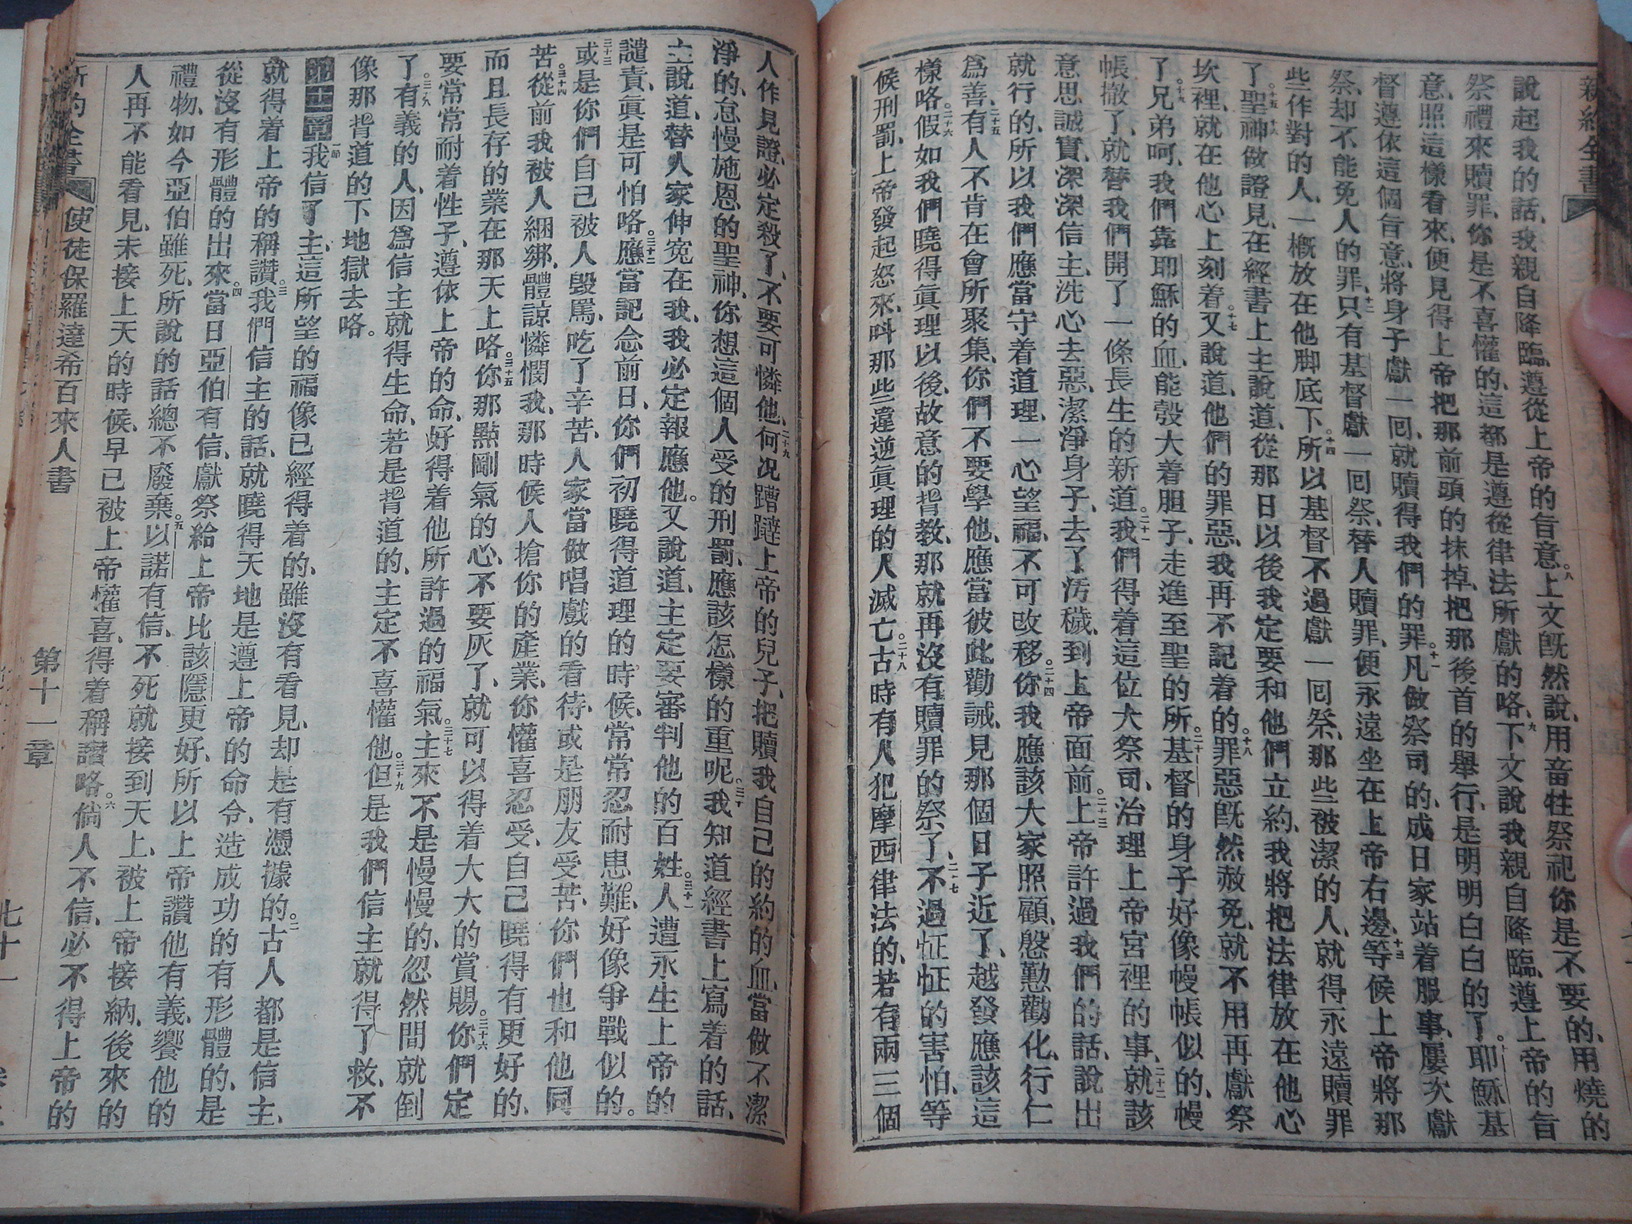 新約全書
說起我的話、我親自降臨、遵從上帝的旨意。八上文旣然說、用畜牲祭祀你是不要的、用燒的
祭禮來贖罪、你是不喜懽的、這都是遵從律法所獻的咯、九下文說我親自降臨、遵上帝的旨
意、照這樣看來、便見得上帝把那前頭的抹掉、把那後首的舉行、是明明白白的了。十耶穌基
督遵依這個旨意、將身子獻一囘、就贖得我們的罪。十一凡做祭司的、成日家站着服事、屢次獻
祭、却不能免人的罪、十二只有基督獻一囘祭、替人贖罪、便永遠坐在上帝右邊、十三等候上帝將那
些作對的人、一概放在他脚底下、十四所以基督不過獻一囘祭、那些被潔的人、就得永遠贖罪
了、十五聖神做證見、十六在經書上主說道、從那日以後我定要和他們立約、我將把法律放在他心
坎裡、就在他心上刻着、十七又說道、他們的罪惡、我再不記着的、十八罪惡旣然赦免、就不用再獻祭
了。十九兄弟呵、我們靠耶穌的血、能彀大着胆子、走進至聖的所、二十基督的身子好像幔帳似的、幔
帳撤了、就替我們開了一條長生的新道、二十一我們得着這位大祭司、治理上帝宮裡的事、二十二就該
意思誠實、深深信主、洗心去惡、潔淨身子、去了汚穢、到上帝面前、二十三上帝許過我們的話、說出
就行的、所以我們應當守着道理、一心望福、不可改移、二十四你我應該大家照顧、慇懃勸化、行仁
爲善、二十五有人不肯在會所聚集、你們不要學他、應當彼此勸誡、見那個日子近了、越發應該這
樣咯、二十六假如我們曉得眞理以後、故意的背教、那就再沒有贖罪的祭了、二十七不過怔怔的害怕、等
候刑罰、上帝發起怒來、呌那些違逆眞理的人滅亡、二十八古時有人犯摩西律法的、若有兩三個
人作見證、必定殺了、不要可憐他、二十九何况蹧蹥上帝的兒子、把贖我自己的約的血、當做不潔
淨的、怠慢施恩的聖神、你想這個人受的刑罰、應該怎樣的重呢。三十我知道經書上寫着的話、
主說道、替人家伸寃在我、我必定報應他。又說道、主定要審判他的百姓、三十一人遭永生上帝的
譴責、眞是可怕咯、三十二應當記念前日、你們初曉得道理的時候、常常忍耐患難、好像爭戰似的。
三十三或是你們自己被人毀罵、吃了辛苦、人家當做唱戲的看待、或是朋友受苦、你們也和他同
苦、三十四從前我被人綑綁、體諒憐憫我、那時候人搶你的產業、你懽喜忍受、自己曉得有更好的、
而且長存的業在那天上咯、三十五你那點剛氣的心、不要灰了、就可以得着大大的賞賜、三十六你們定
要常常耐着性子、遵依上帝的命、好得着他所許過的福氣、三十七主來不是慢慢的、忽然間就到
了、三十八有義的人、因爲信主就得生命、若是背道的、主定不喜懽他、三十九但是我們信主就得了救、不
像那背道的下地獄去咯。
第十一章一節我信了主、這所望的福、像已經得着的、雖沒有看見、却是有憑據的、二古人都是信主、
就得着上帝的稱讚、三我們信主的話、就曉得天地是遵上帝的命令、造成功的、有形體的、是
從沒有形體的出來、四當日亞伯有信、獻祭給上帝、比該隱更好、所以上帝讚他有義、饗他的
禮物、如今亞伯雖死、所說的話總不廢棄、五以諾有信、不死就接到天上、被上帝接納、後來的
人再不能看見、未接上天的時候、早已被上帝懽喜、得着稱讚咯、六倘人不信、必不得上帝的
新約全書 使徒保羅達希百來人書 第十一章 七十一